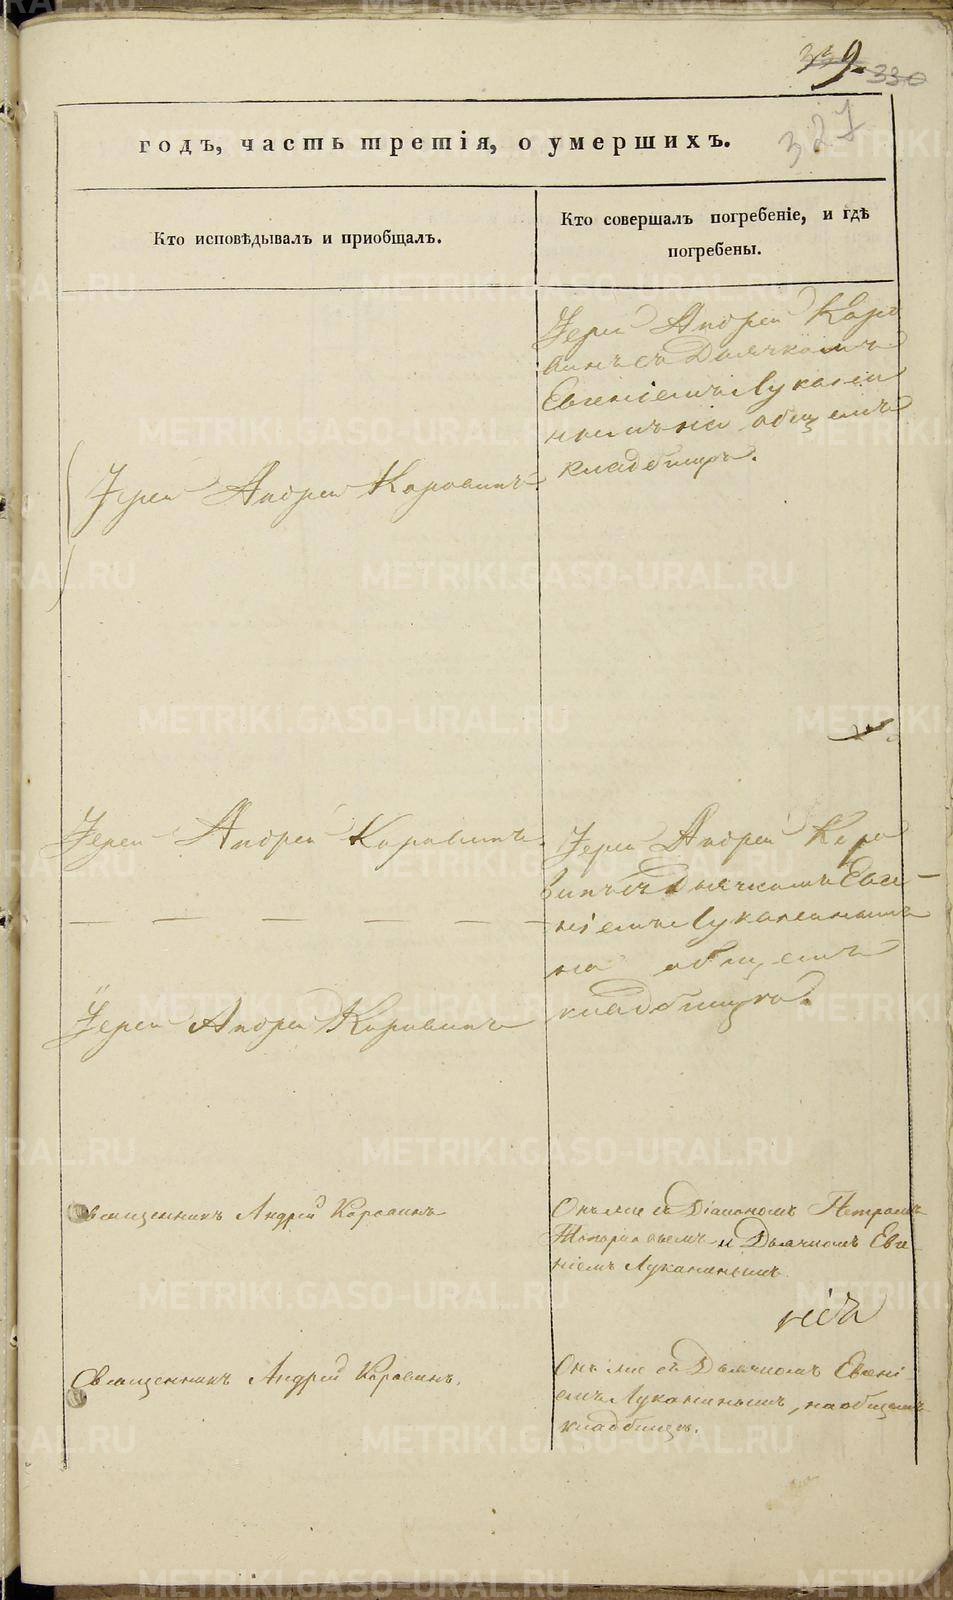 9.
330
327
годъ, часть третія, о умершихъ.
Кто исповѣдывалъ и пріобщалъ.
Кто совершалъ погребеніе, и гдѣ
погребены.
Іерей Андрей Каро
винъ съ Дьячкомъ
Евгеніемъ Лукани
нымъ на общемъ
кладбищѣ.
Іерей Андрей Коровинъ
Іерей Андрей Коровинъ
Іерей Андрей Коро
винъ съ Дьячкомъ Евге-
ніемъ Луканинымъ
на общемъ
кладбищѣ.
Іерей Андрей Коровинъ
Священникъ Андрей Коровинъ
Онъ же съ Діакономъ Петромъ
и Дьячкомъ Евге-
ніемъ Луканинымъ
Священникъ Андрей Коровинъ.
Онъ же съ Дьячкомъ Евгені-
емъ Луканинымъ, на общемъ
кладбищѣ.
METRIKI.GASO-URAL.RU